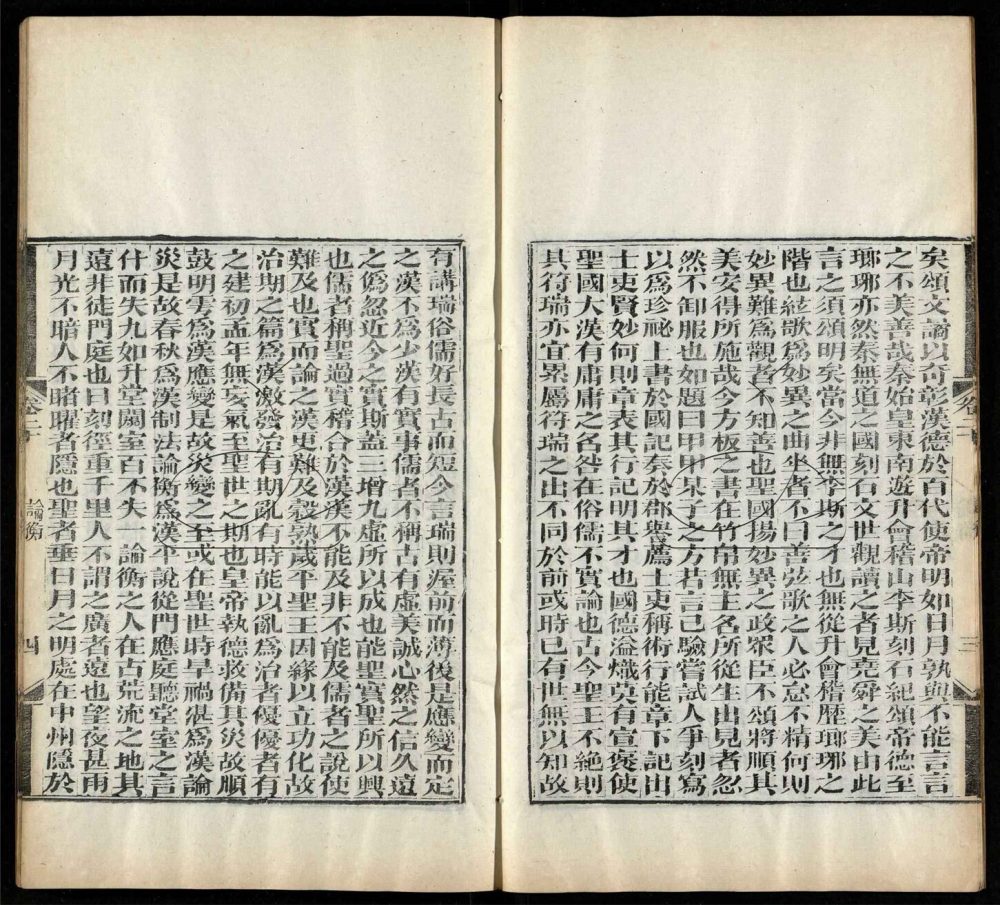 矣頌文譎以奇彰漢德於百代使帝明如日月孰與不能言言
之不美善哉秦始皇東南遊升會稽山李斯刻石紀頌帝德至
瑯琊亦然秦無道之國刻石文世觀讀之者見堯舜之美由此
言之須頌明矣當今非無李斯之才也無從升會稽歴瑯琊之
階也絃歌爲妙異之曲坐者不曰善弦歌之人必怠不精何則
妙異難爲觀者不知善也聖國揚妙異之政衆臣不頌將順其
美安得所施哉今方板之書在竹帛無主名所從生出見者忽
然不卸服也如題曰甲甲某子之方若言已驗嘗試人爭刻寫
以爲珍祕上書於國記奏於郡譽薦士吏稱術行能章下記出
士吏賢妙何則章表其行記明其才也國德溢熾莫有宣褒使
聖國大漢有庸庸之名咎在俗儒不實論也古今聖王不絶則
其符瑞亦宜累屬符瑞之出不同於前或時已有世無以知故
卷二十
三
有講瑞俗儒好長古而短今言瑞則渥前而薄後是應變而定
之漢不爲少漢有實事儒者不稱古有虛美誠心然之信久遠
之僞忽近今之實斯蓋三增九虛所以成也能聖實聖所以興
也儒者稱聖過實稽合於漢漢不能及非不能及儒者之說使
難及也實而論之漢更難及穀熟歲平聖王因緣以立功化故
治期之篇爲漢激發治有期亂有時能以亂爲治者優優者有
之建初孟年無妄氣至聖世之期也皇帝執德救備其災故順
鼓明雩爲漢應變是故災變之至或在聖世時旱禍湛爲漢論
災是故春秋爲漢制法論衡爲漢平說從門應庭聽堂室之言
什而失九如升堂闚室百不失一論衡之人在古荒流之地其
遠非徒門庭也日刻徑重千里人不謂之廣者遠也望夜甚雨
月光不暗人不睹曜者隱也聖者垂日月之明處在中州隱於
卷二十
論衡
四